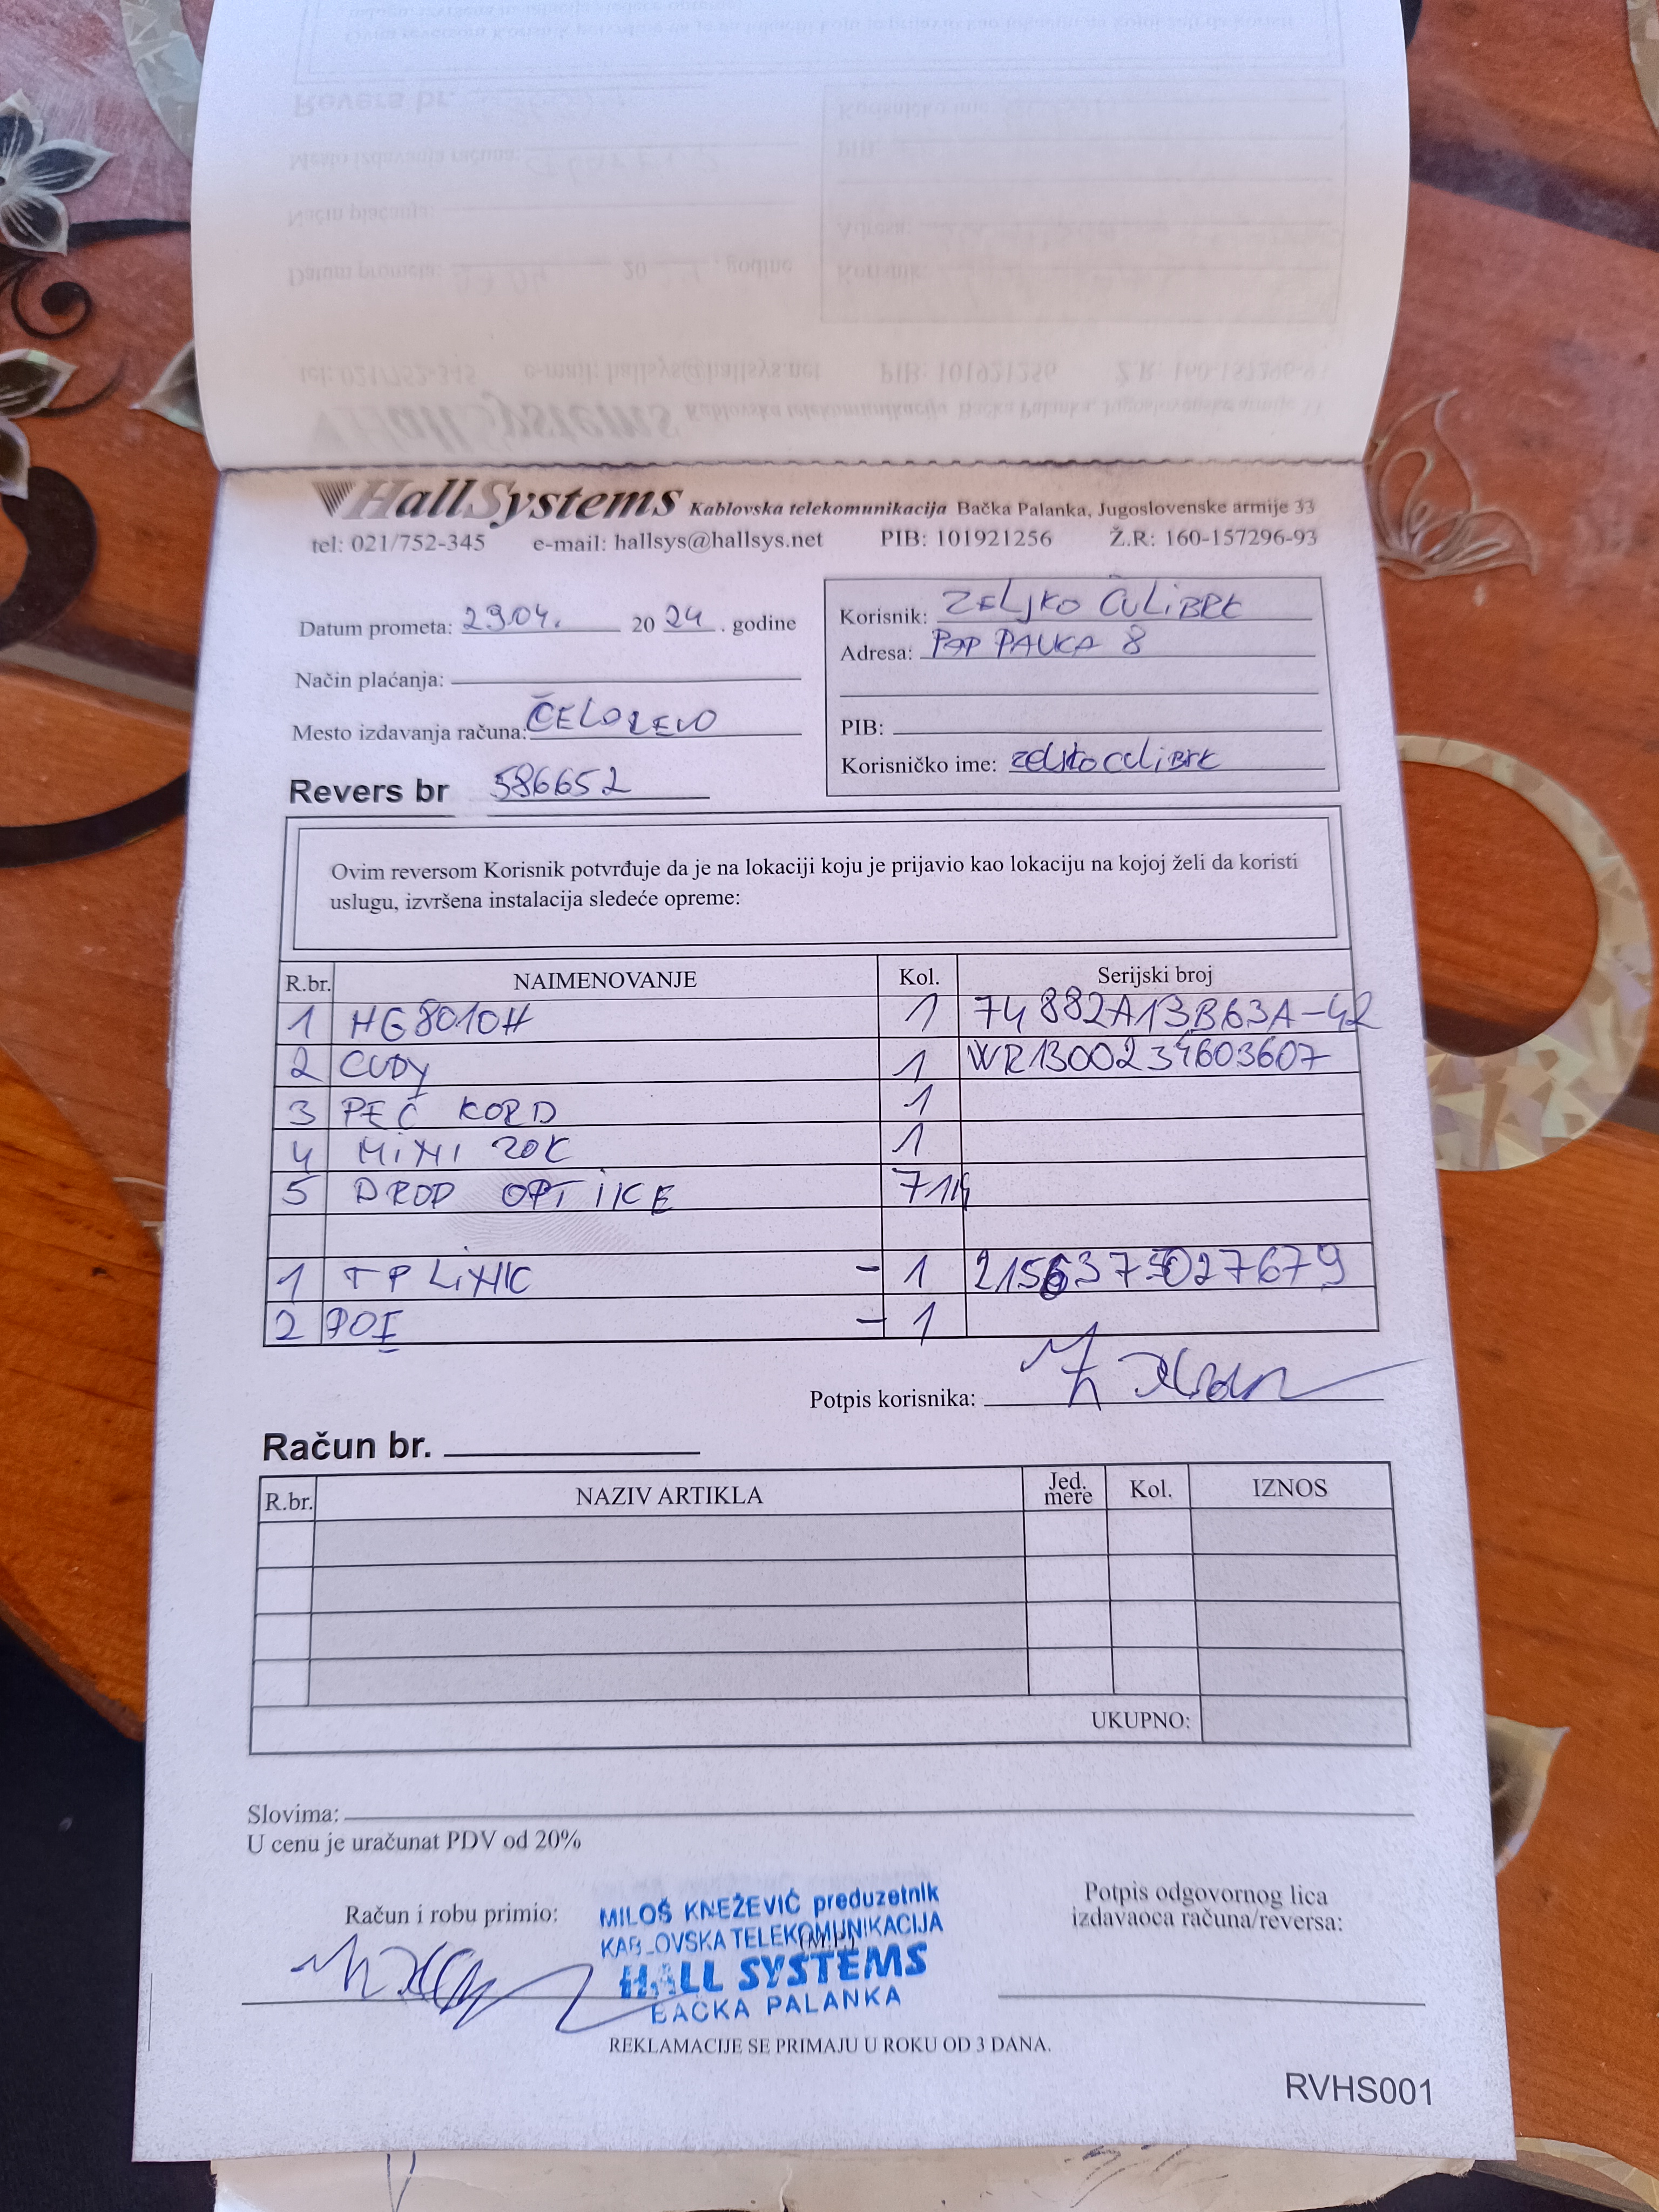 HallSystems Kablovska telekomunikacija Bačka Palanka, Jugoslovenske armije 33
tel: 021/752-345 e-mail: hallsys@hallsys.net PIB: 101921256 Ž.R: 160-157296-93
Datum prometa: 29.04. 20 24 . godine
Način plaćanja:
Mesto izdavanja računa: ČELAREVO
Revers br 586652
Korisnik: ZELJKO ČULIBRK
Adresa: POP PAVKA 8
PIB:
Korisničko ime: zeljkoculibrk
Ovim reversom Korisnik potvrđuje da je na lokaciji koju je prijavio kao lokaciju na kojoj želi da koristi
uslugu, izvršena instalacija sledeće opreme:
R.br. NAIMENOVANJE Kol. Serijski broj
1 HG8010H 1 74882A13B63A-42
2 CUDY 1 WR1300234603607
3 PEČ KORD 1
4 MINI ZOK 1
5 DROP OPTIKE 71M
1 TP LINK - 1 2156375027679
2 POE - 1
Potpis korisnika:
Račun br.
R.br. NAZIV ARTIKLA Jed. mere Kol. IZNOS
UKUPNO:
Slovima:
U cenu je uračunat PDV od 20%
Račun i robu primio:
MILOŠ KNEŽEVIĆ preduzetnik
KABLOVSKA TELEKOMUNIKACIJA
(M.P.)
HALL SYSTEMS
BAČKA PALANKA
Potpis odgovornog lica
izdavaoca računa/reversa:
REKLAMACIJE SE PRIMAJU U ROKU OD 3 DANA.
RVHS001